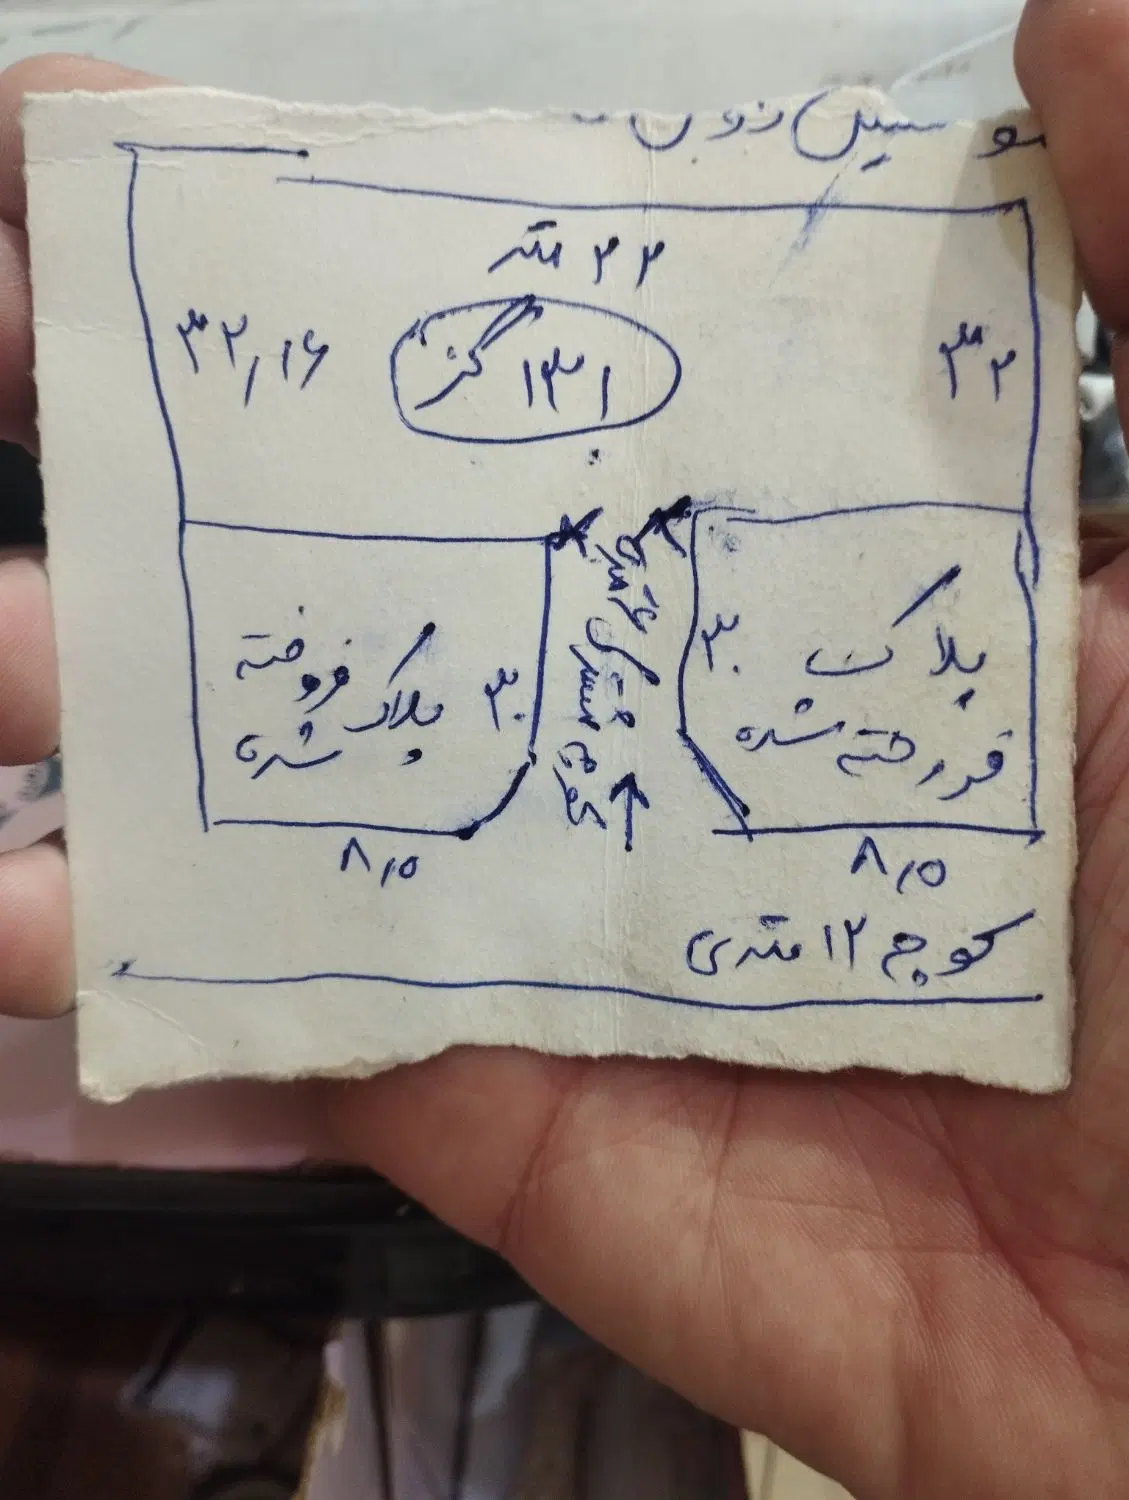 ۲۲ متر
۳۲,۱۶
۱۳۱ گز
۳۲
۶ متری
کوچه مشترکی
پلاک فروخته
شده
۳۰
۳۰
پلاک
فروخته شده
۸,۵
۸,۵
کوچه ۱۲ متری